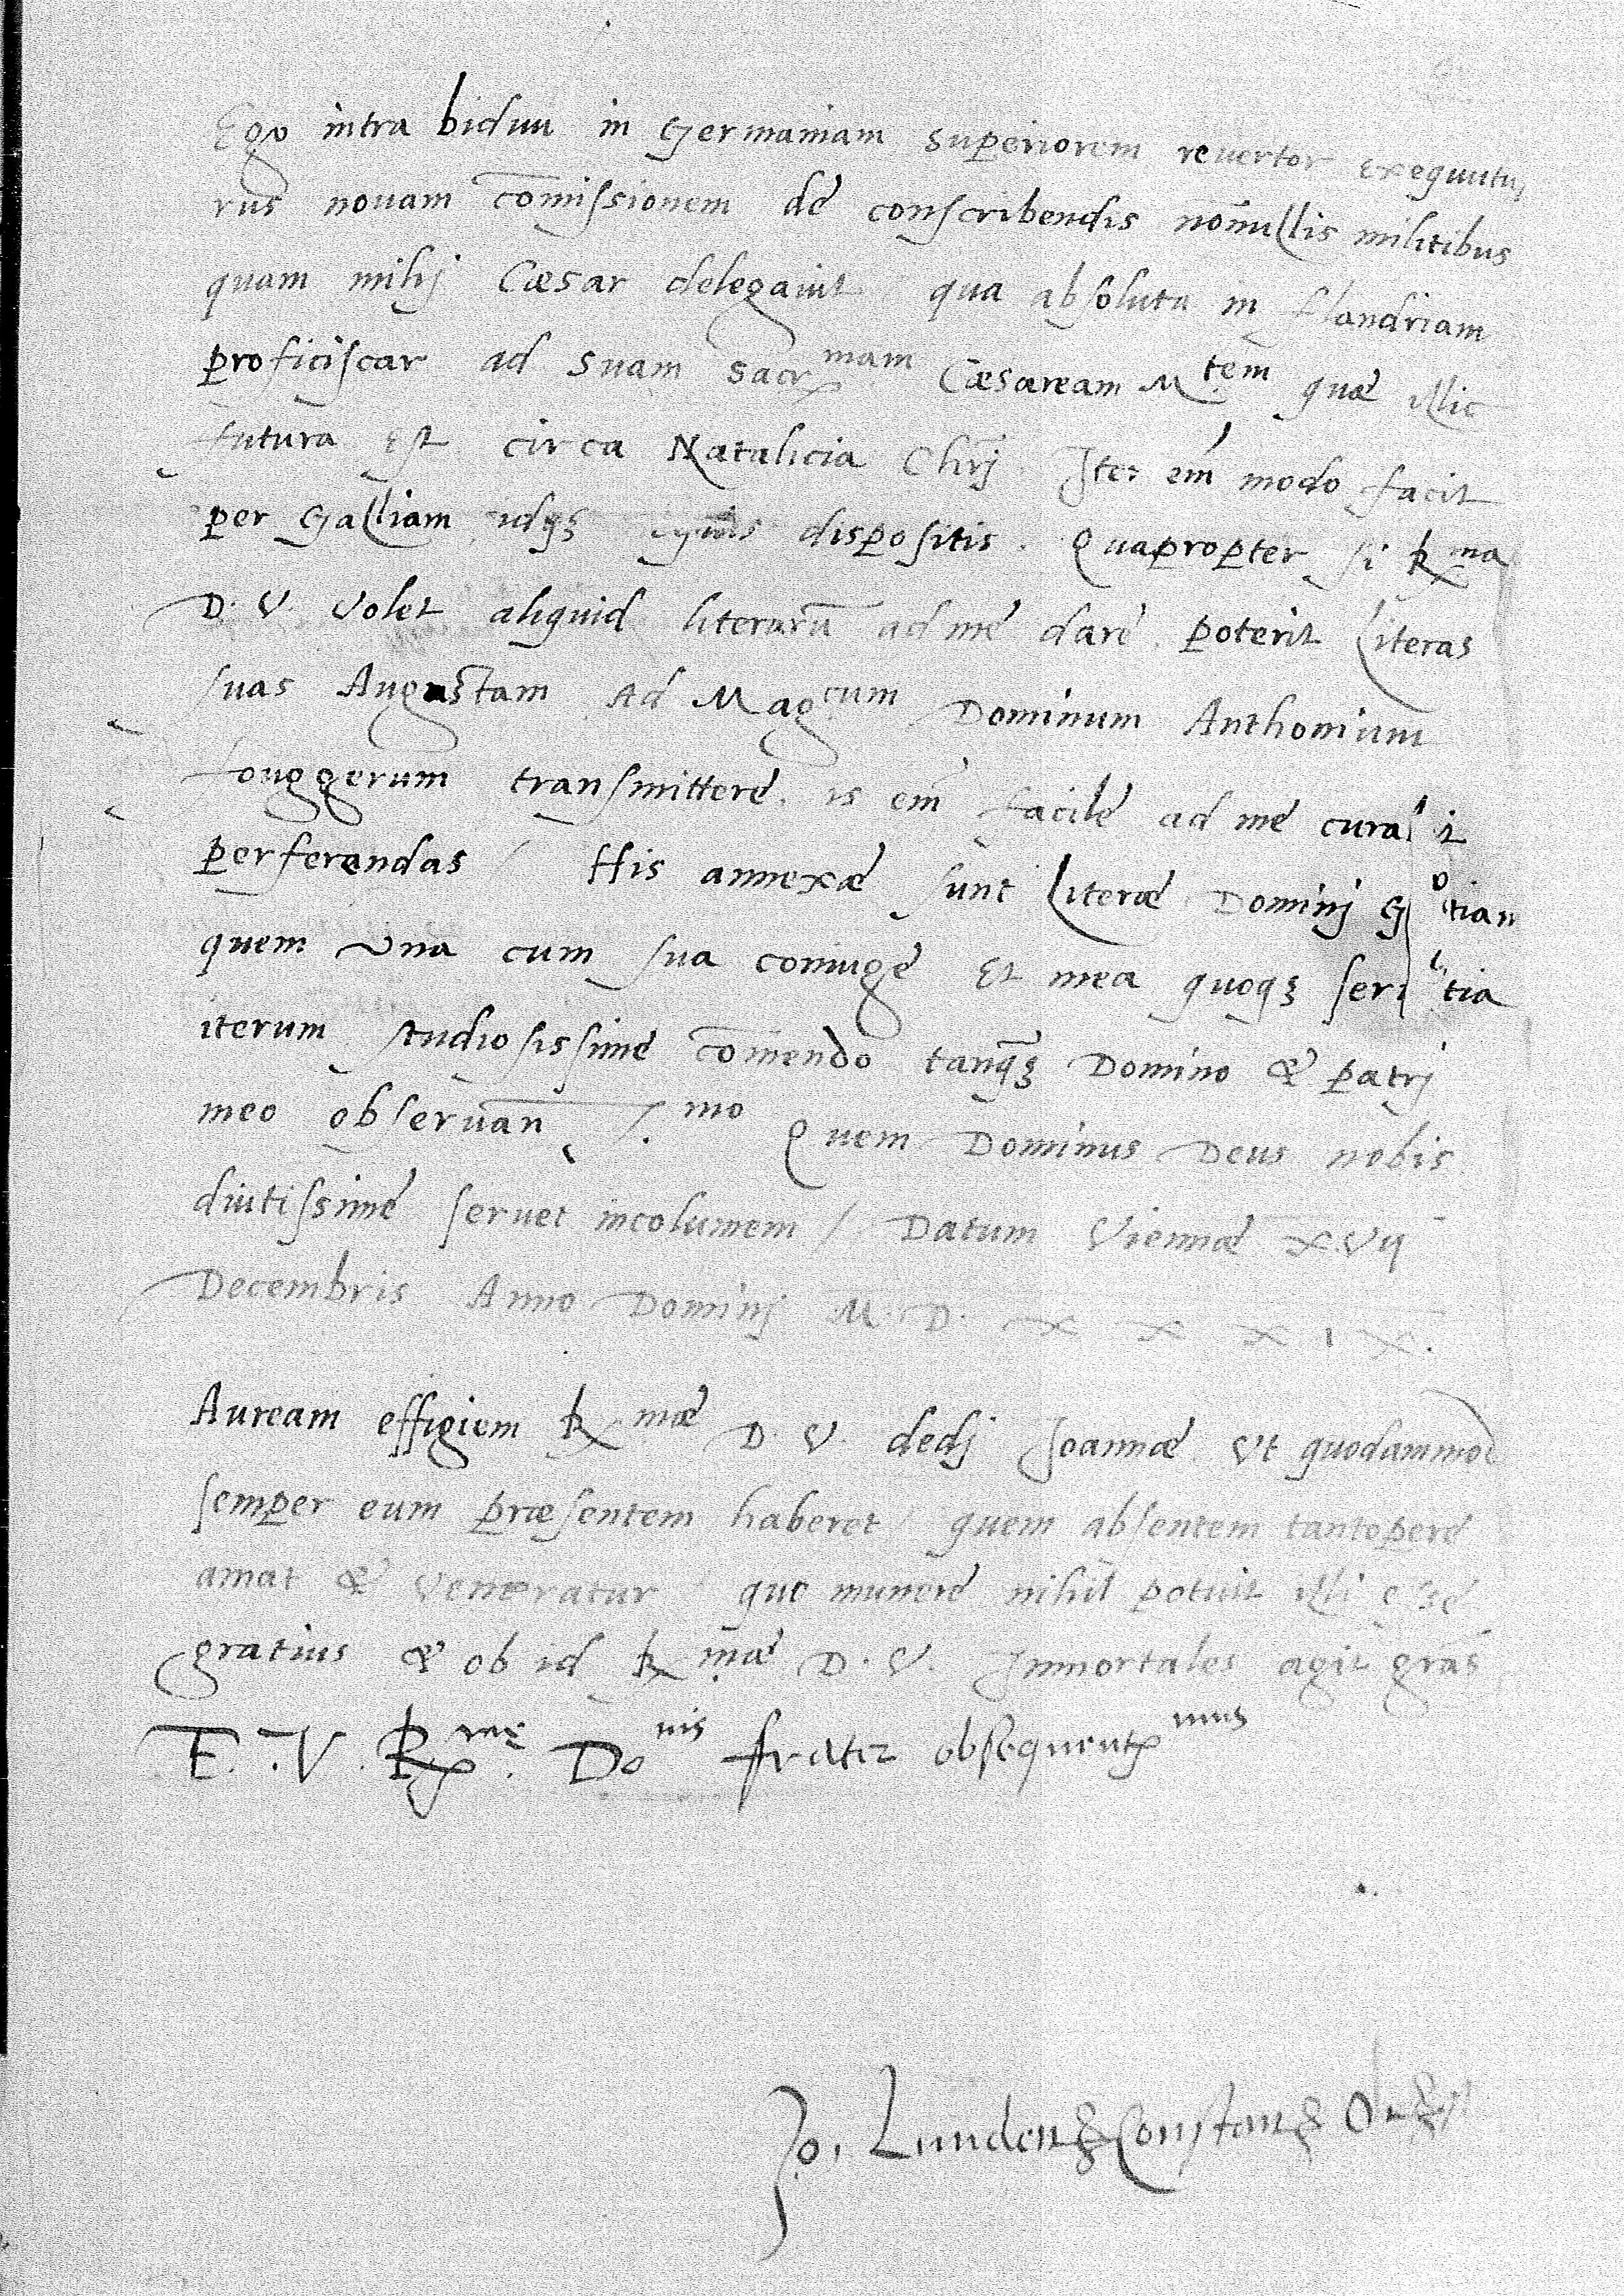 Ego intra biduu in Germaniam superiorem revertor exequutu,
rus novam comissionem de conscribendis nonullis militibus
quam mihj Cæsar delegavit qua absoluta in flandriam
proficiscar ad suam sacr mam Cæsaream M tem quæ illic
futura est circa Natalicia Chrj. Iter em modo facit
per Galliam idq dispositis. Quapropter si R ma
D. V. volet aliquid literaru ad me dare poterit literas
suas Augustam ad Mag cum Dominum Anthonium
fouggerum transmittere. is em facile ad me cura it
perferendas / His annexæ sunt literæ Dominj G tian
quem una cum sua coniuge Et mea quoq ser tia
iterum studiosissime comendo tanq Domino & patrj
meo observan / . mo Quem Dominus Deus nobis
diutissime servet incolumem / Datum Viennæ x.vij
Decembris Anno Dominj M. D. x x x i x.
Auream effigiem R mæ D. V. dedj Joannæ ut quodammod
semper eum præsentem haberet quem absentem tantopere
amat & veneratur quo munere nihil potuit illi esse
gratius & ob id R mæ D. V. Immortales agit gras
E. V. R me. Do nis frater obsequent mus
Jo. Lunden & Constan